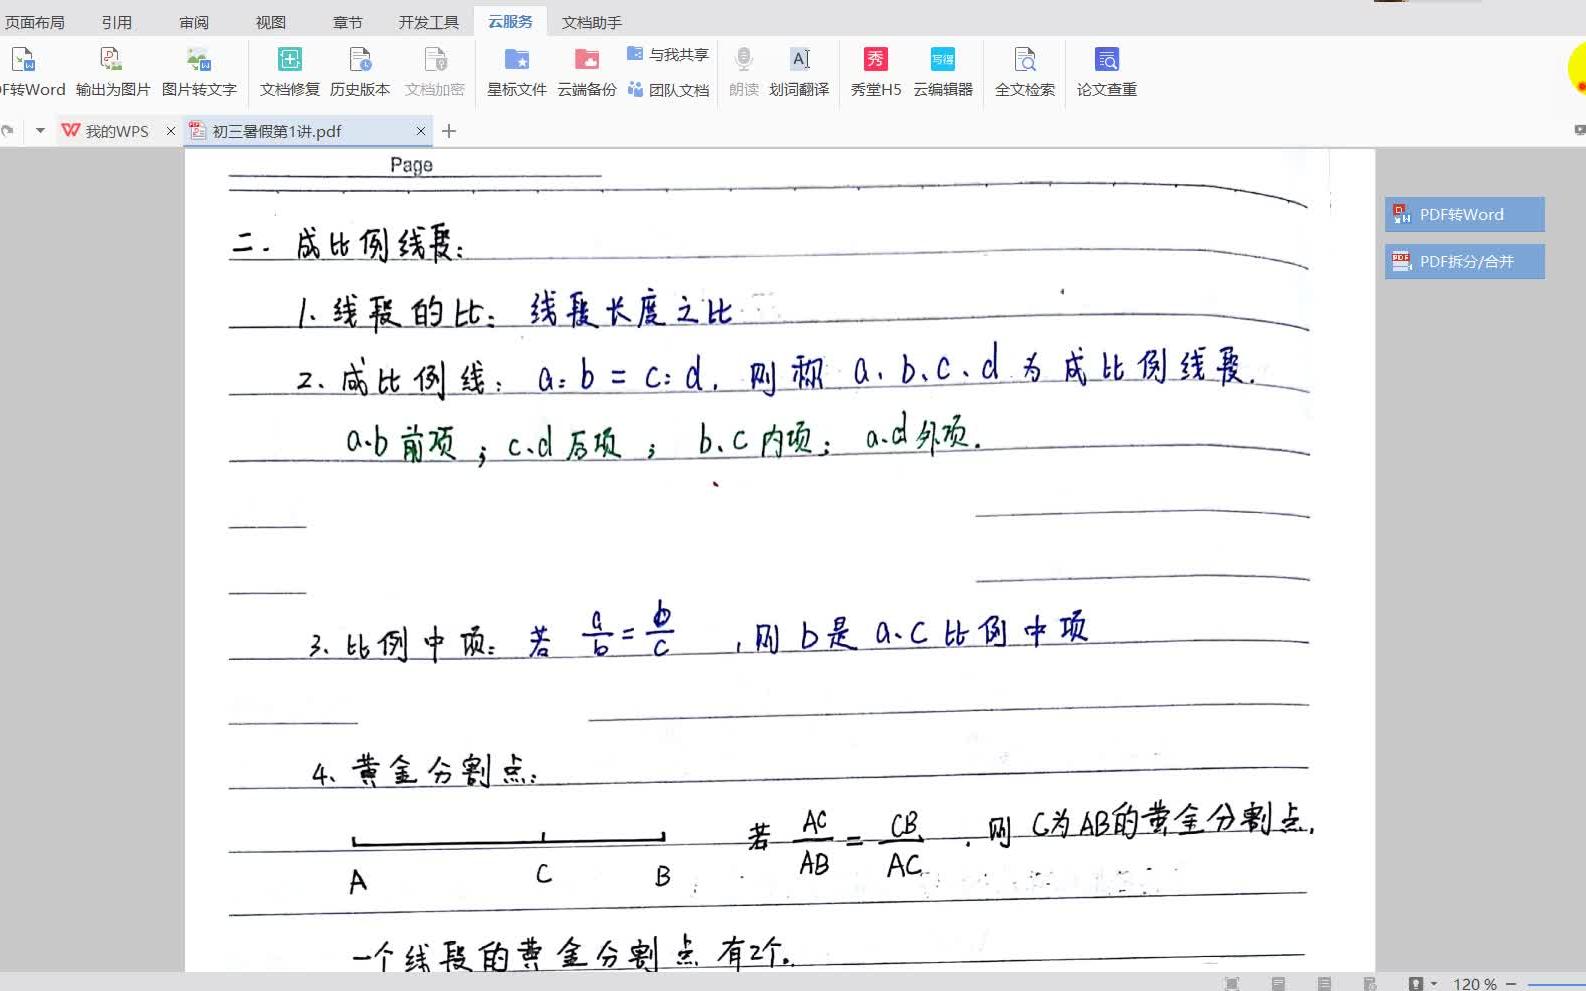 页面布局 引用 审阅 视图 章节 开发工具 云服务 文档助手
F转Word 输出为图片 图片转文字 文档修复 历史版本 文档加密 星标文件 云端备份 与我共享 团队文档 朗读 划词翻译 秀堂H5 云编辑器 全文检索 论文查重
我的WPS × 初三暑假第1讲.pdf × +
Page
PDF转Word
PDF拆分/合并
二. 成比例线段:
1、线段的比: 线段长度之比
2、成比例线: a:b = c:d, 则称 a、b、c、d 为成比例线段.
a、b前项; c、d后项; b、c内项; a、d外项.
3、比例中项: 若 a/b = b/c , 则 b是 a、c 比例中项
4、黄金分割点:
若 AC/AB = CB/AC , 则 C为AB的黄金分割点.
A C B
一个线段的黄金分割点有2个.
120 %